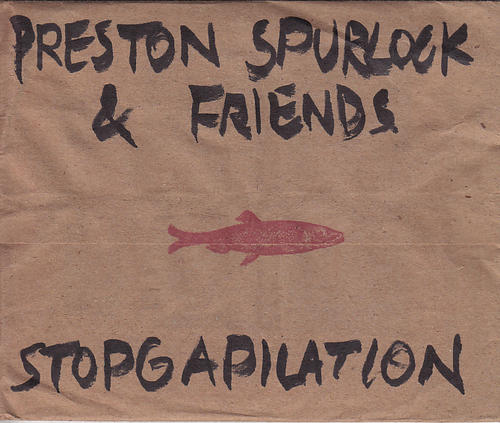 PRESTON SPURLOCK
& FRIENDS
STOPGAPILATION